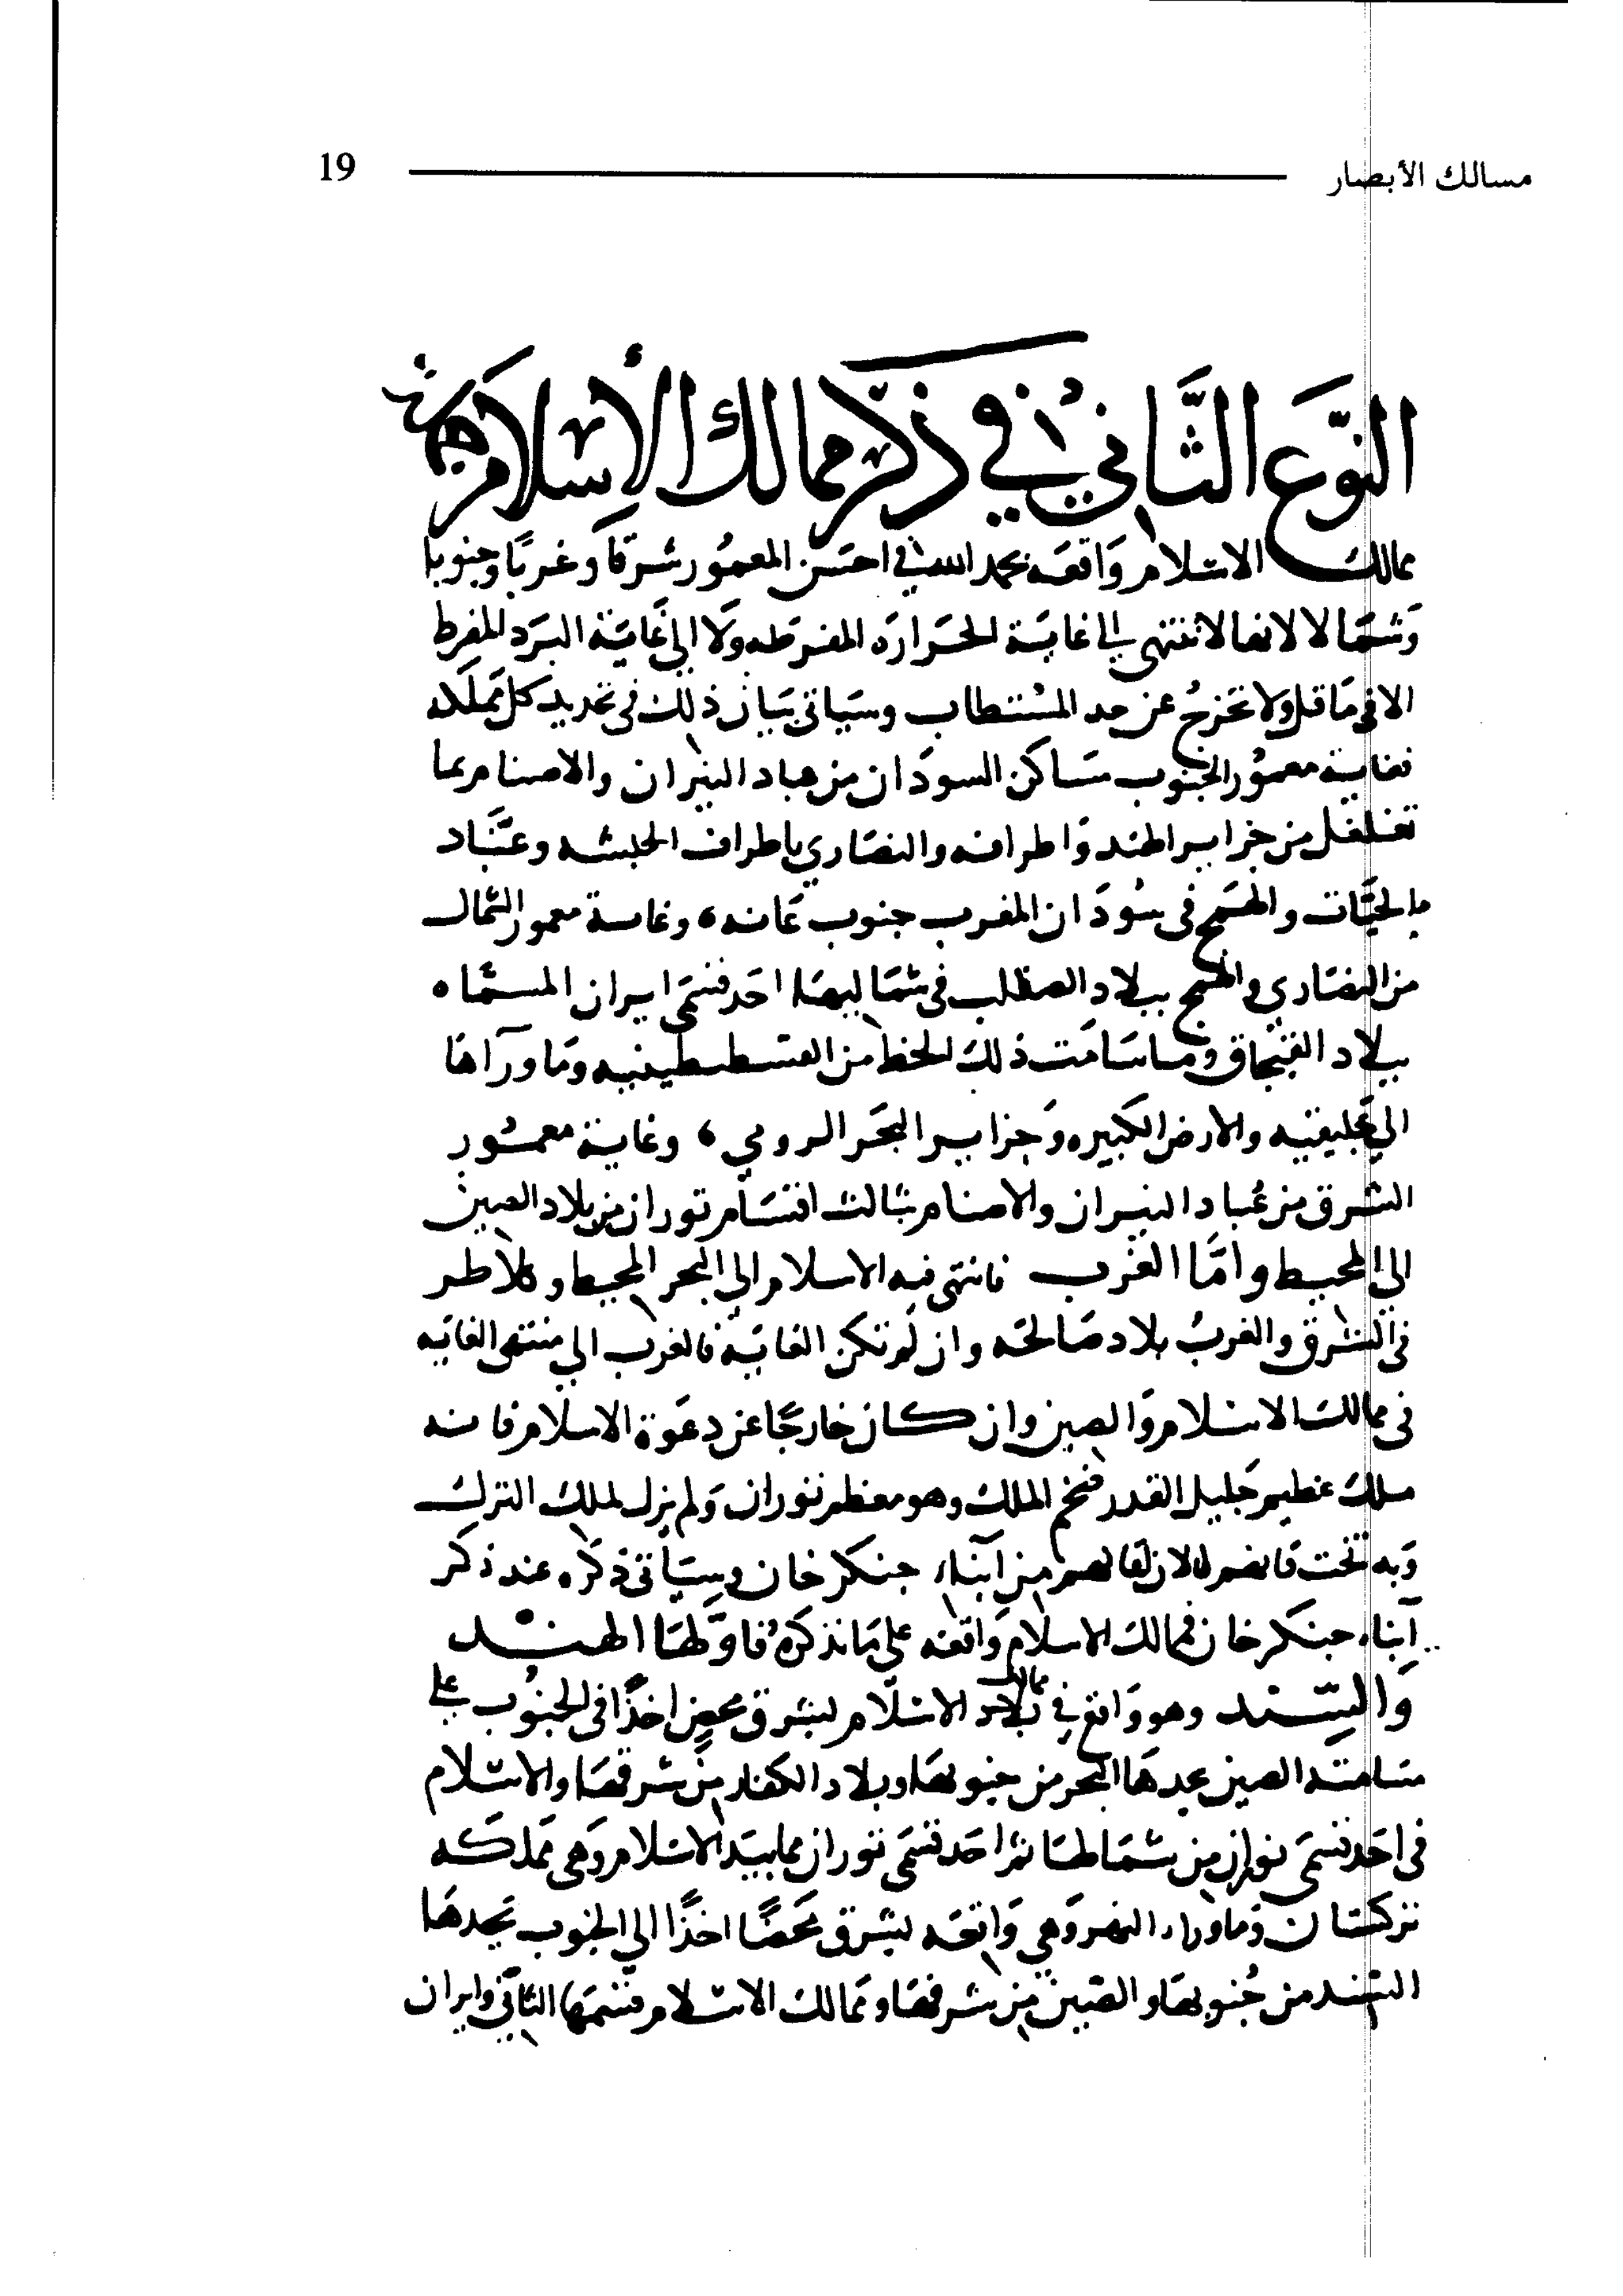 مسالك الأبصار 19
النوع الثاني في ذكر ممالك الإسلام
ممالك الاسلام واقعه بحمد الله في احسن المعمور شرقا وغربا وجنوبا
وشمالا لانها لا تنتهي الى غاية الحراره المفرطه ولا الى غاية البرد المفرط
الا في ما قل ولا تخرج عن حد المستطاب وسياتي بيان ذلك في تحديد كل مملكه
فغاية معمور الجنوب مساكن السودان من عباد النيران والاصنام بما
تغلغل من جزاير الهند واطرافه والنصاري باطراف الحبشه وعباد
الحيات والهمج في سودان المغرب جنوب غانه، وغاية معمور الشمال
من النصاري والهمج ببلاد الصقلب في شماليها احد قسمي ايران المسماه
ببلاد القبجاق وما سامت ذلك الخط من القسطنطينيه وما ورآها
الي جليقيه والارض الكبيره وجزاير البحر الرومي، وغاية معمور
الشرق من عباد النيران والاصنام بثالث اقسام توران من بلاد الصين
الى المحيط واما الغرب فانتهى فيه الاسلام الي البحر المحيط
في الشرق والغرب بلاد صالحه وان لم تكن الغاية فالغرب الي منتهى الغايه
في ممالك الاسلام والصين وان كان خارجا عن دعوة الاسلام فانه
ملك عظيم جليل القدر فخم الملك وهو معظم توران ولم يزل لملك الترك
وبه تخت قانهم والان من آبناء جنكز خان وسياتي ذكره عند ذكر
آبناء جنكز خان فممالك الاسلام واقعه على ما نذكره فاولها الهند
والسند وهو واقع في ممالك بلاد الاسلام بشرق محض اخذا في الجنوب على
مسامتة الصين يحدها البحر من جنوبها وبلاد الكفار من شرقها والاسلام
في احد قسمي توران من شمالها ثم احد قسمي توران مما بيد الاسلام وهي مملكه
تركستان وما وراء النهر وهي واقعه بشرق محضا اخذا الي الجنوب يحدها
السند من جنوبها والصين من شرقها وممالك الاسلام قسمها الثاني وايران